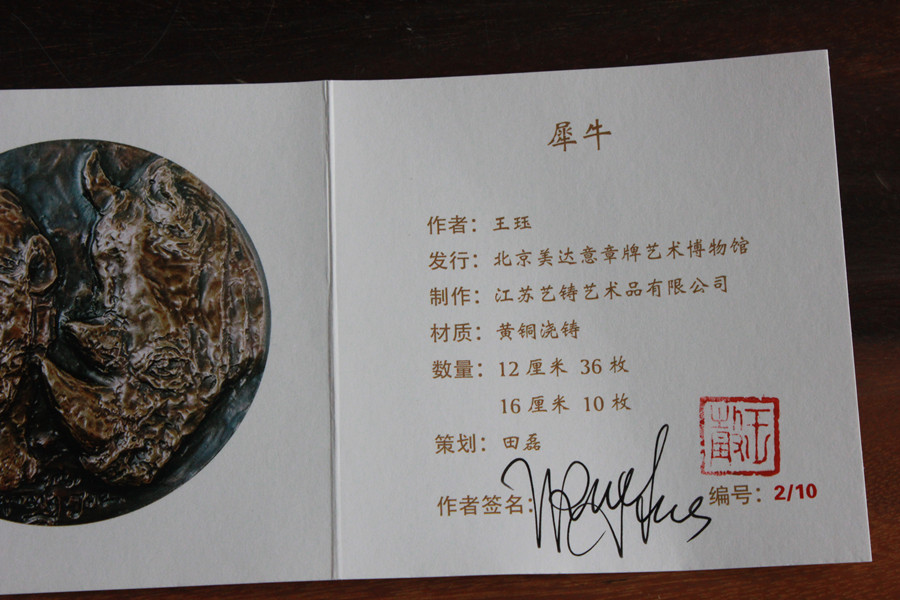 犀牛
作者：王珏
发行：北京美达意章牌艺术博物馆
制作：江苏艺铸艺术品有限公司
材质：黄铜浇铸
数量：12厘米 36枚
16厘米 10枚
策划：田磊
作者签名：
编号：2/10